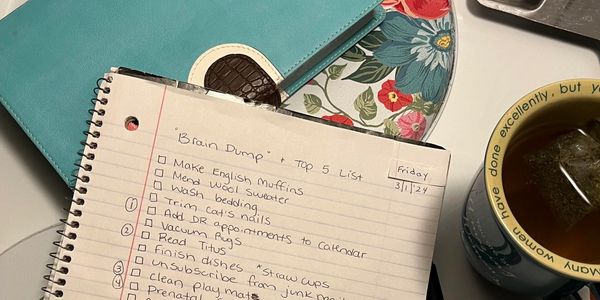 "Brain Dump" + Top 5 List
Friday
3/1/24
Make English Muffins
Mend Wool Sweater
Wash bedding
① Trim cat's nails
Add DR appointments to Calendar
② Vacuum Rugs
Read Titus
Finish dishes *straw cups
③ unsubscribe from junk mail
④ clean play mat
Prenatal
done excellently, but
Many women have